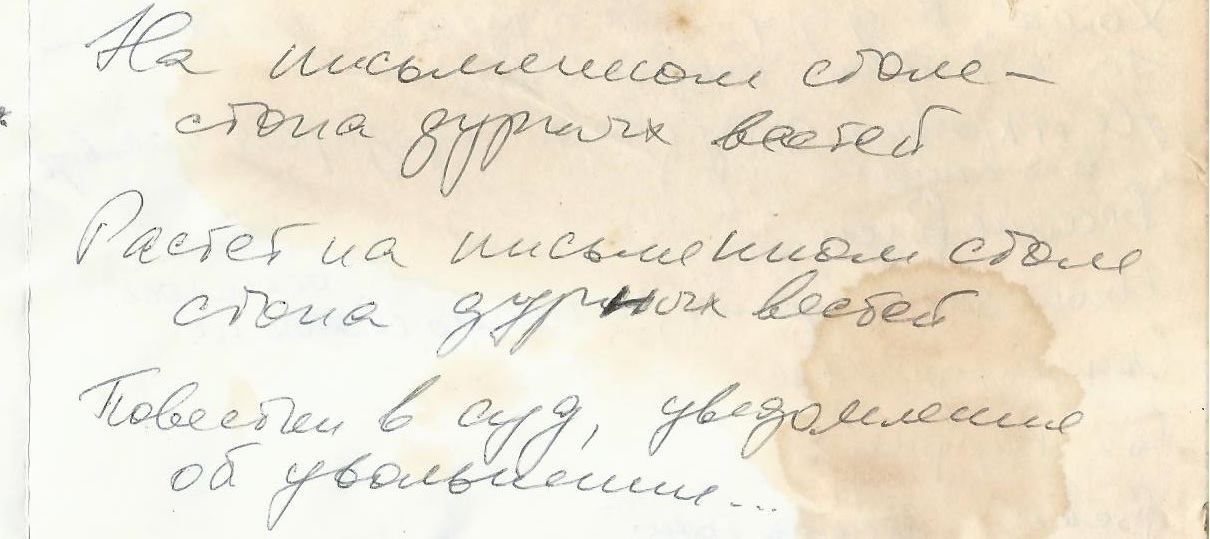 На письменном столе –
стопа дурных вестей
Растет на письменном столе
стопа дурных вестей
Повестки в суд, уведомление
об увольнении...